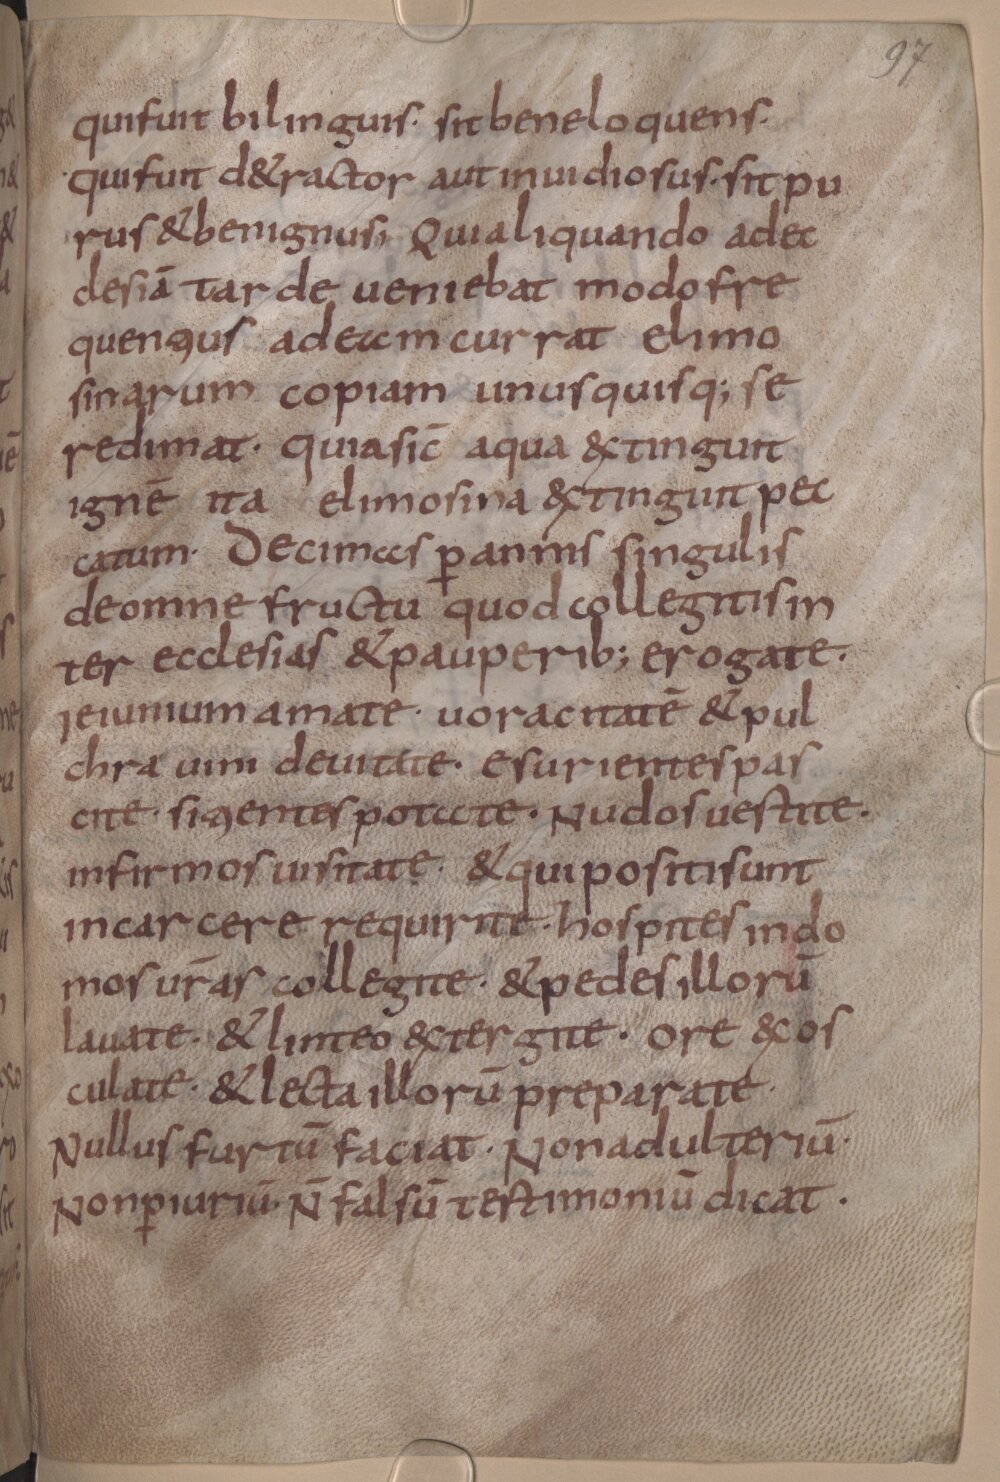 97
qui fuit bilinguis· sit bene loquens·
qui fuit d&ractor aut inuidiosus· sit pu
rus & benignus; Qui aliquando ad ec
clesiā tarde ueniebat modo fre
quentius ad eam currat elimo
sinarum copiam unusquisq; se
redimat· quia sic̄ aqua &tinguit
ignē ita elimosina &tinguit pec
catum· Decimas p̲ annis singulis
de omne fructu quod collegitis in
ter ecclesias & pauperib; erogate·
ieiunium amate· uoracitatē & pul
chra uini deuitate· esurientes pas
cite· sitientes potate· Nudos uestite·
infirmos uisitate· & qui positi sunt
in carcere requirite· hospites in do
mos ur̄as collegite· & pedes illorū
lauate· & linteo &tergite· ore &os
culate· & lecta illorū preparate·
Nullus furtū faciat· Non adulteriū·
Non p̲iuriū· N̄ falsū testimoniū dicat·